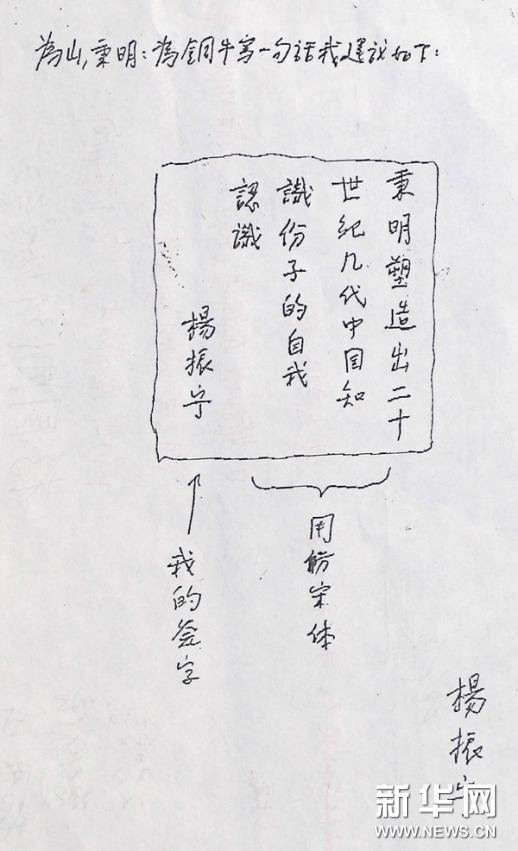 為山，秉明：為銅牛寫一句話我建議如下：
秉明塑造出二十
世紀几代中国知
識份子的自我
認識
楊振宁
用仿宋体
我的签字
楊振宁
新华网
WWW.NEWS.CN